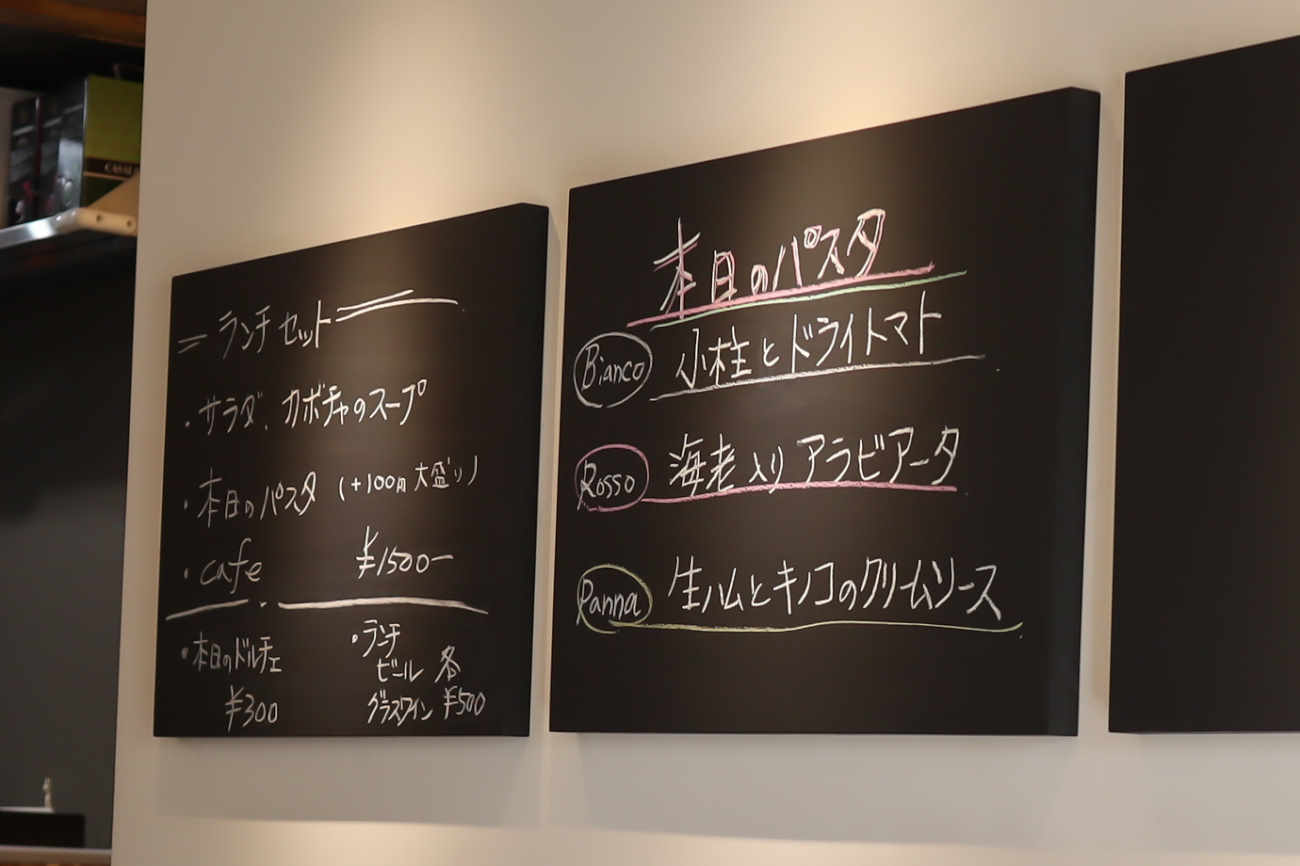 ランチセット
・サラダ、カボチャのスープ
・本日のパスタ (+100円大盛り)
・cafe ¥1500ー
・本日のドルチェ
¥300
・ランチ
ビール 各
グラスワイン ¥500
本日のパスタ
Bianco 小柱とドライトマト
Rosso 海老入りアラビアータ
Panna 生ハムとキノコのクリームソース